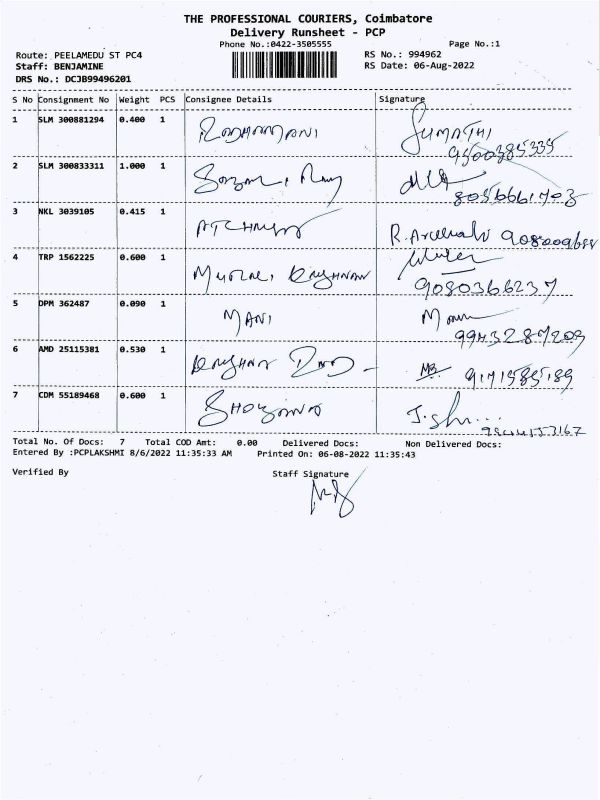 THE PROFESSIONAL COURIERS, Coimbatore
Delivery Runsheet - PCP
Phone No.:0422-3505555 Page No.:1
Route: PEELAMEDU ST PC4 RS No.: 994962
Staff: BENJAMINE RS Date: 06-Aug-2022
DRS No.: DCJB99496201
S No Consignment No Weight PCS Consignee Details Signature
1 SLM 300881294 0.400 1 RADHAMANI SUMATHI
9500385335
2 SLM 300833311 1.000 1
8056661703
3 NKL 3039105 0.415 1 R.
4 TRP 1562225 0.600 1
9080366237
5 DPM 362487 0.090 1 MANI Mani
9943287209
6 AMD 25115381 0.530 1
9171585189
7 CDM 55189468 0.600 1
Total No. Of Docs: 7 Total COD Amt: 0.00 Delivered Docs: Non Delivered Docs:
Entered By :PCPLAKSHMI 8/6/2022 11:35:33 AM Printed On: 06-08-2022 11:35:43
Verified By Staff Signature